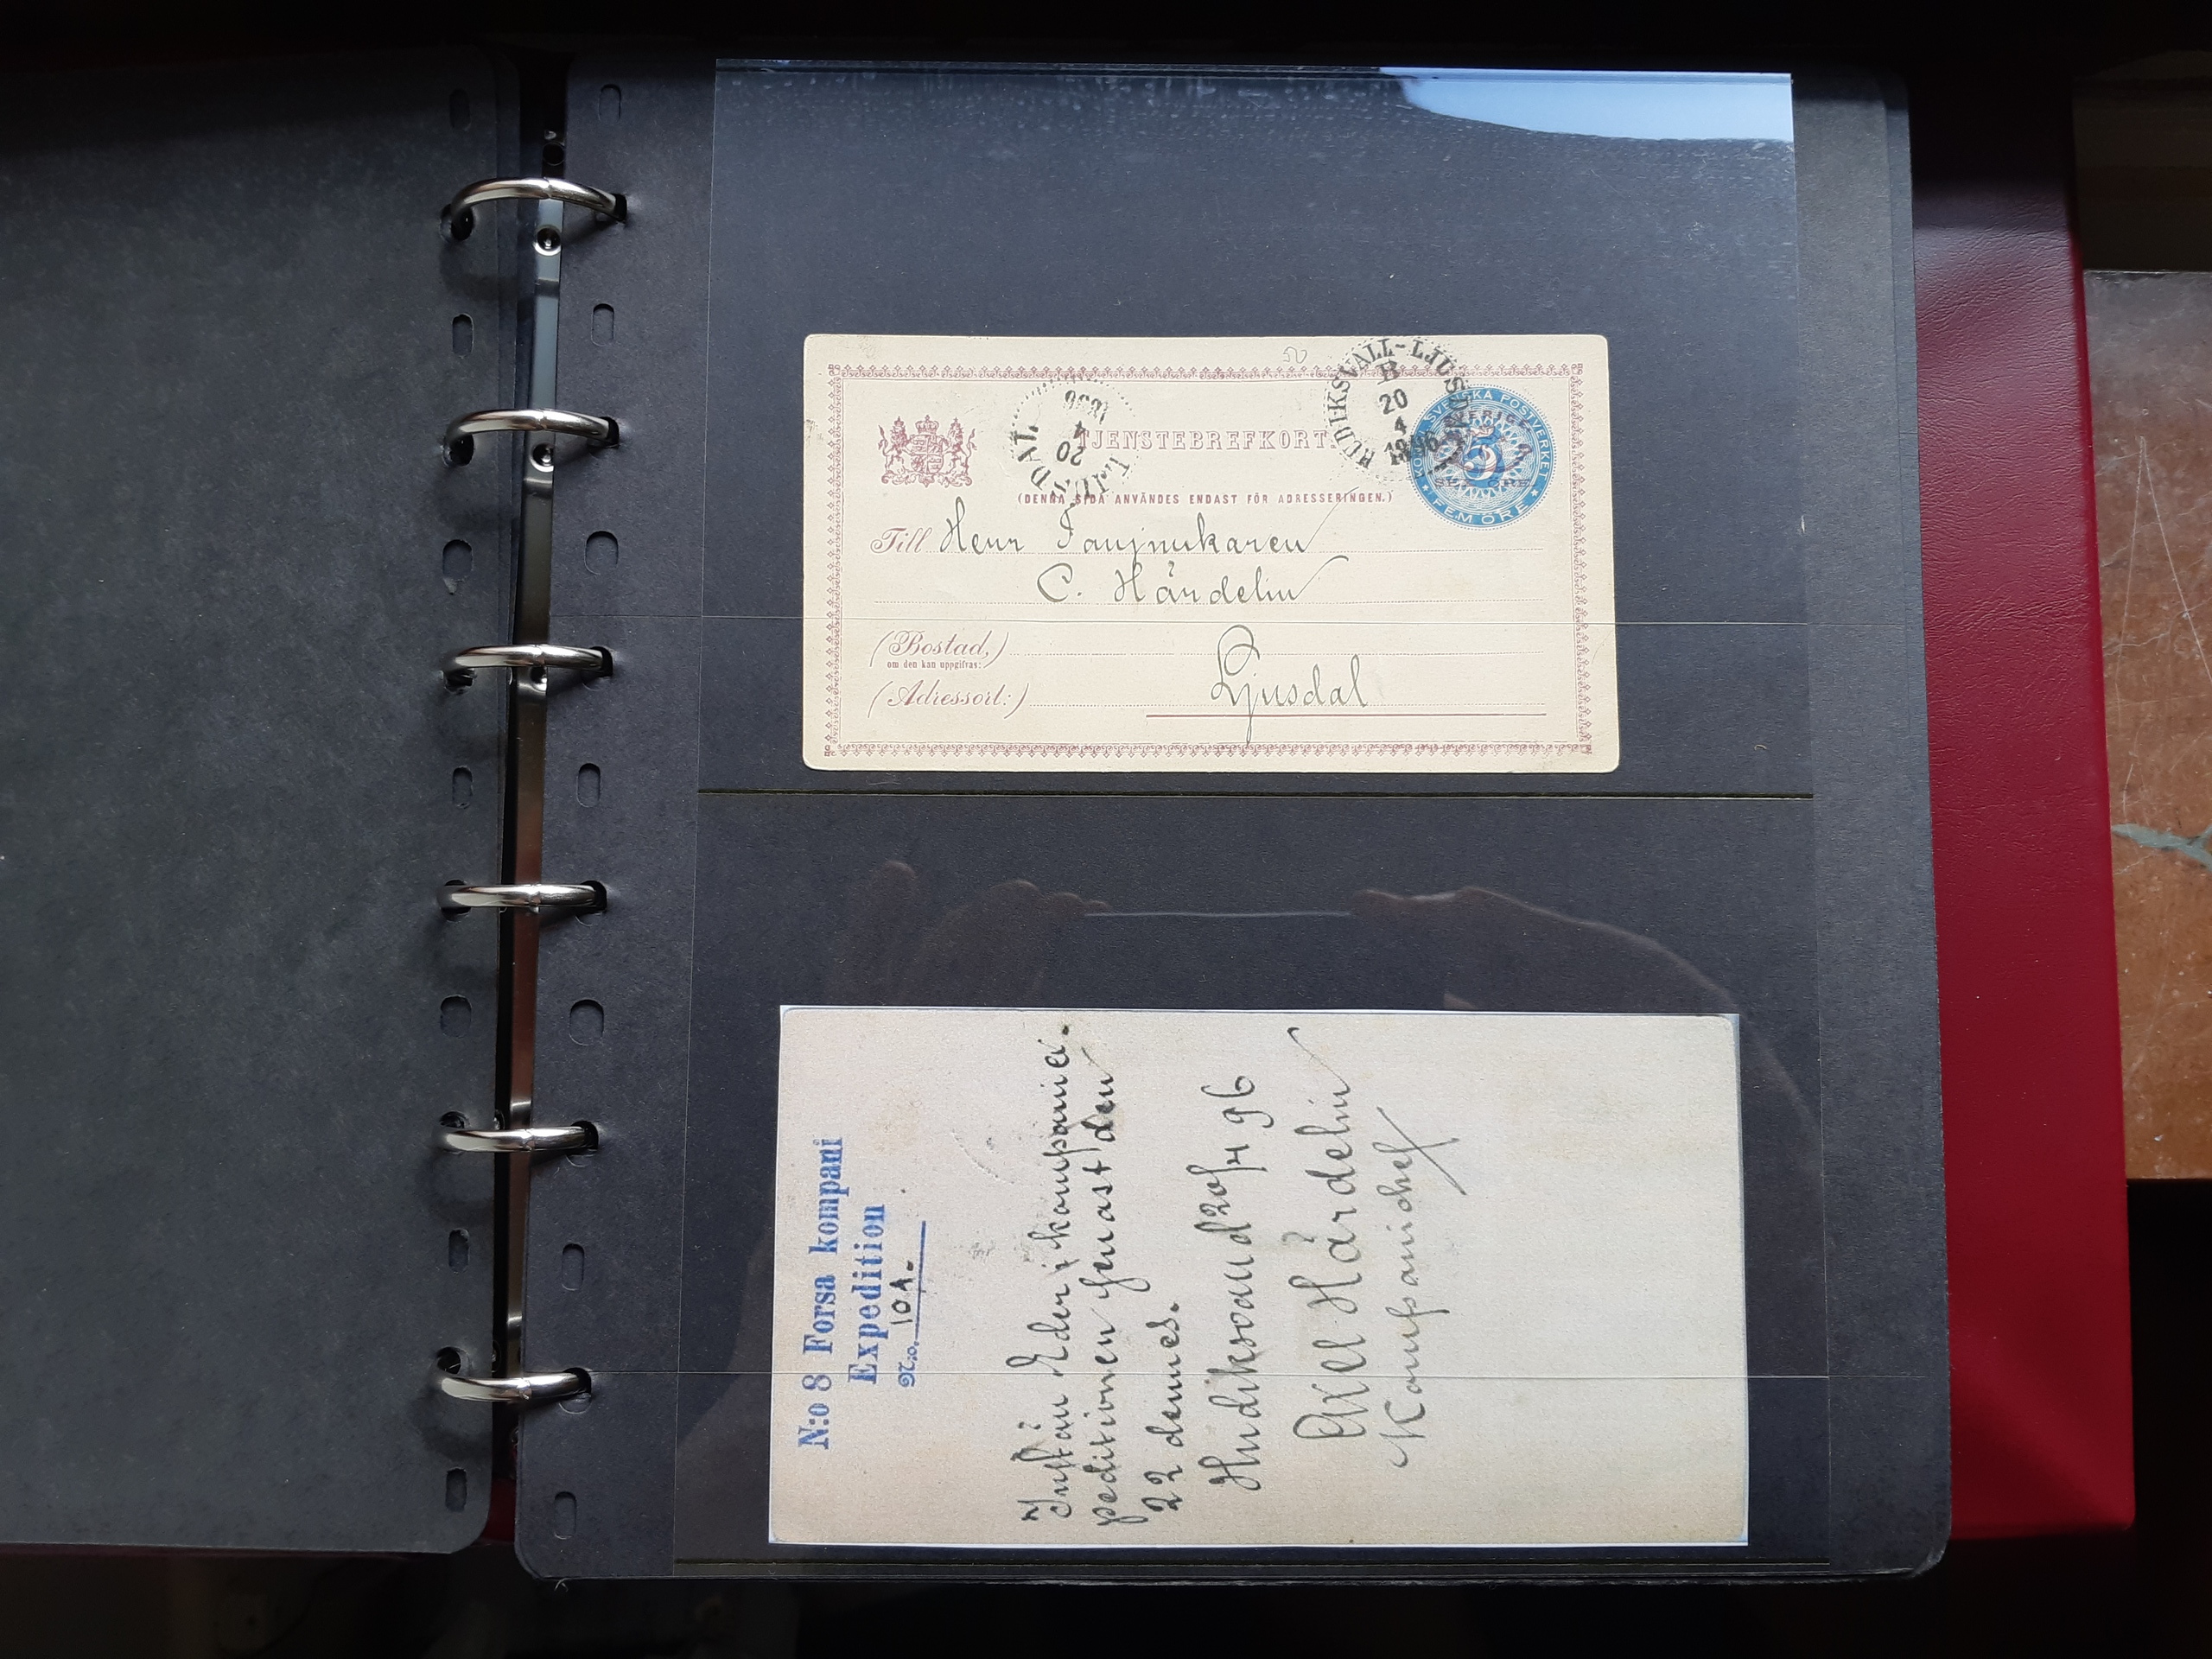 TJENSTEBREFKORT
(DENNA SIDA ANVÄNDES ENDAST FÖR ADRESSERINGEN.)
LJUSDAL
20
4
1896
HUDIKSVALL-LJUSDAL
B
20
4
1896
KONGL. SVENSKA POSTVERKET
SVERIGE
5
FEM ÖRE
Till Herr Fanjunkaren
C. Hårdelin
(Bostad,)
om den kan uppgifvas:
Ljusdal
(Adressort:)
N:o 8 Forsa kompani
Expedition
N:o. 101.
Inställ Eder i kompaniex-
peditionen genast den
22 dennes.
Hudiksvall d 20/4 96
Axel Hårdelin
Kompanichef